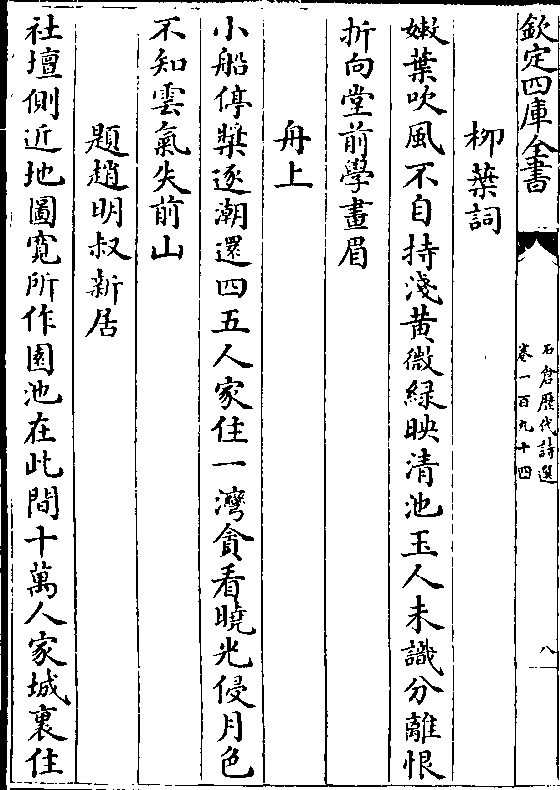 欽定四庫全書
石倉歷代詩選
卷一百九十四
八
柳葉詞
嫩葉吹風不自持淺黄微緑映清池玉人未識分離恨
折向堂前學畫眉
舟上
小船停槳逐潮還四五人家住一灣貪看曉光侵月色
不知雲氣失前山
題趙明叔新居
社壇側近地圖寛所作園池在此間十萬人家城裏住